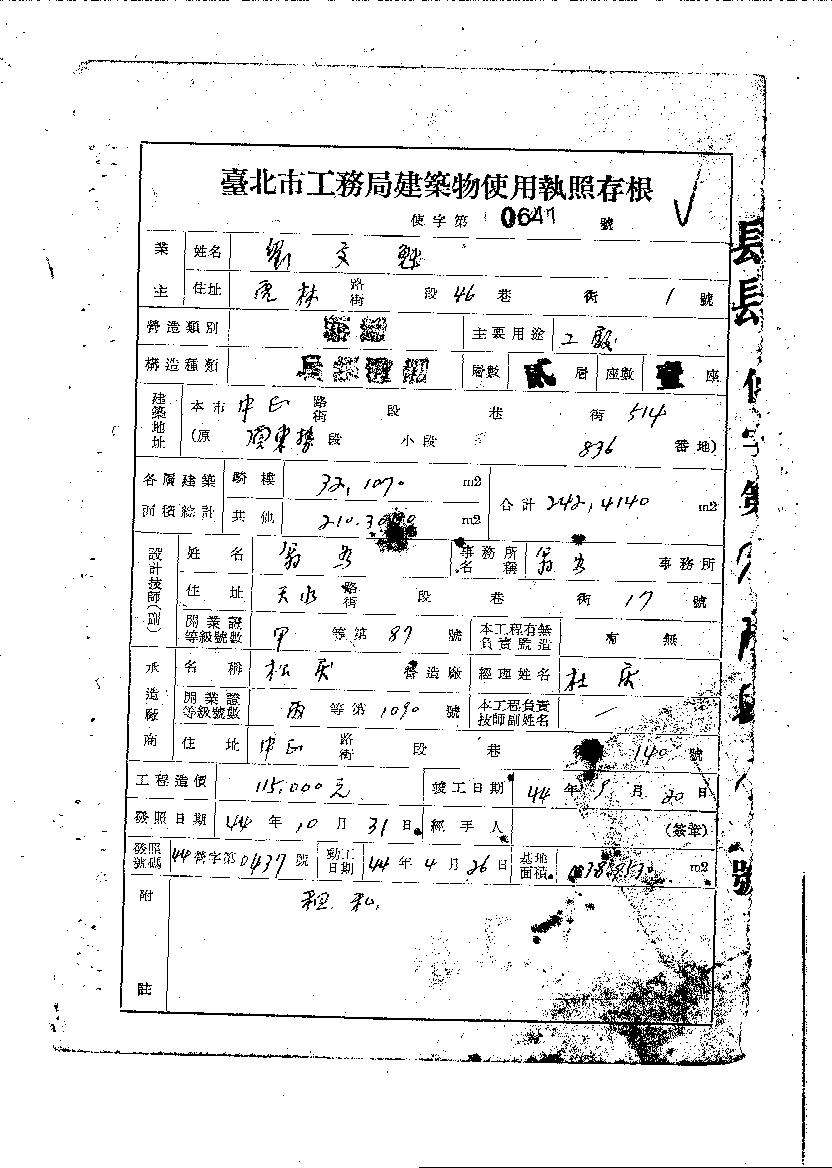 臺北市工務局建築物使用執照存根
使字第 0647 號
業主 姓名 劉文魁
住址 虎林 路街 段 46 巷 街 1 號
營造類別 主要用途 工廠
構造種類 層數 貳 層 座數 壹 座
建築地址 本市 中正 路街 段 巷 街 514
(原 段 小段 836 番地)
各層建築面積總計 騎樓 32.1070 m2
其他 m2 合計 242.4140 m2
設計技師(副) 姓名 事務所名稱 事務所
住址 天水 路街 段 巷 街 17 號
開業證等級號數 甲 等第 87 號 本工程有無負責監造 有 無
承造廠商 名稱 松茂 營造廠 經理姓名
開業證等級號數 丙 等第 1090 號 本工程負責技師副姓名
住址 中正 路街 段 巷 街 140 號
工程造價 115,000元 竣工日期 44 年 9 月 20 日
發照日期 44 年 10 月 31 日 經手人 (簽章)
發照號碼 44營字第0437號 動工日期 44 年 4 月 26 日 基地面積 m2
附註